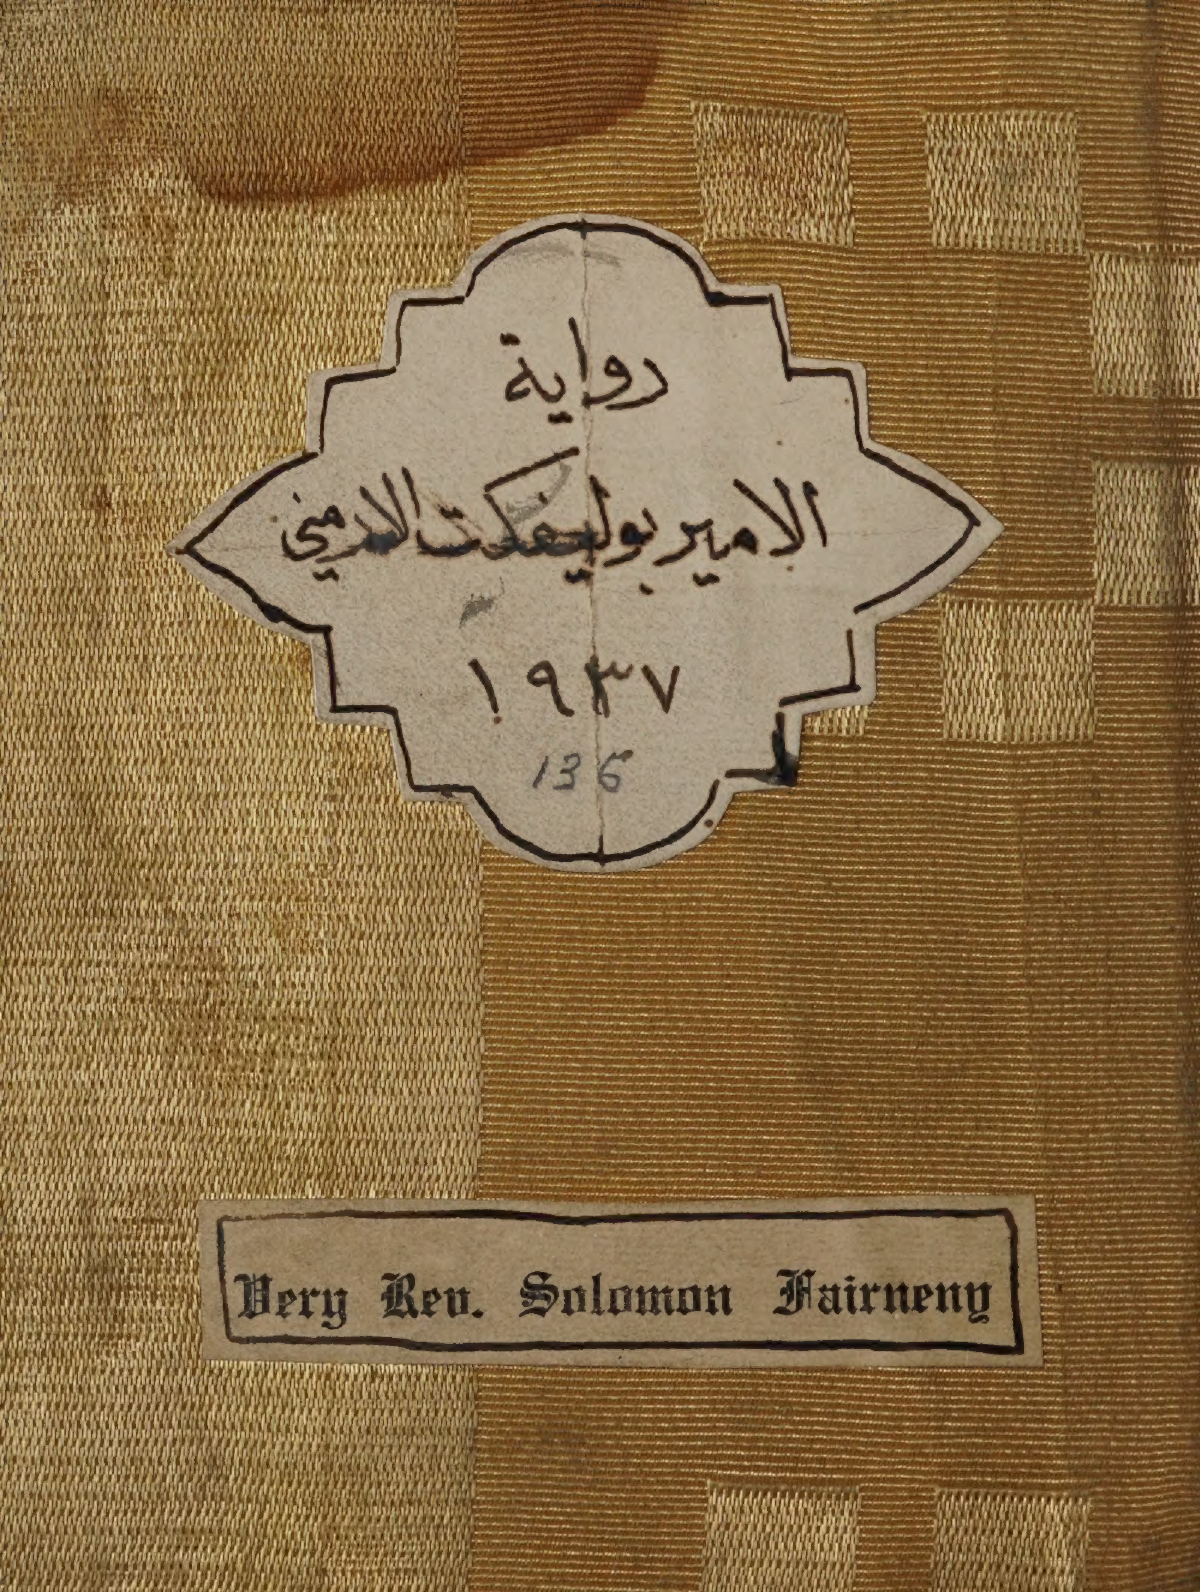 رواية
الامير بوليفكت الارمني
١٩٣٧
136
Very Rev. Solomon Fairneny